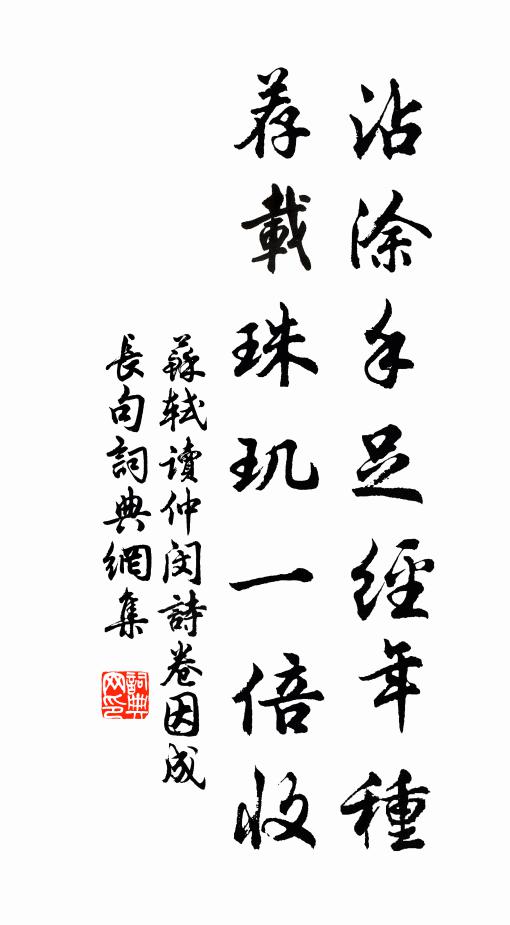 沾涂手足經年種
荐載珠玑一倍收
蘇軾读仲闵詩卷因成
長句詞典網集
詞典网印